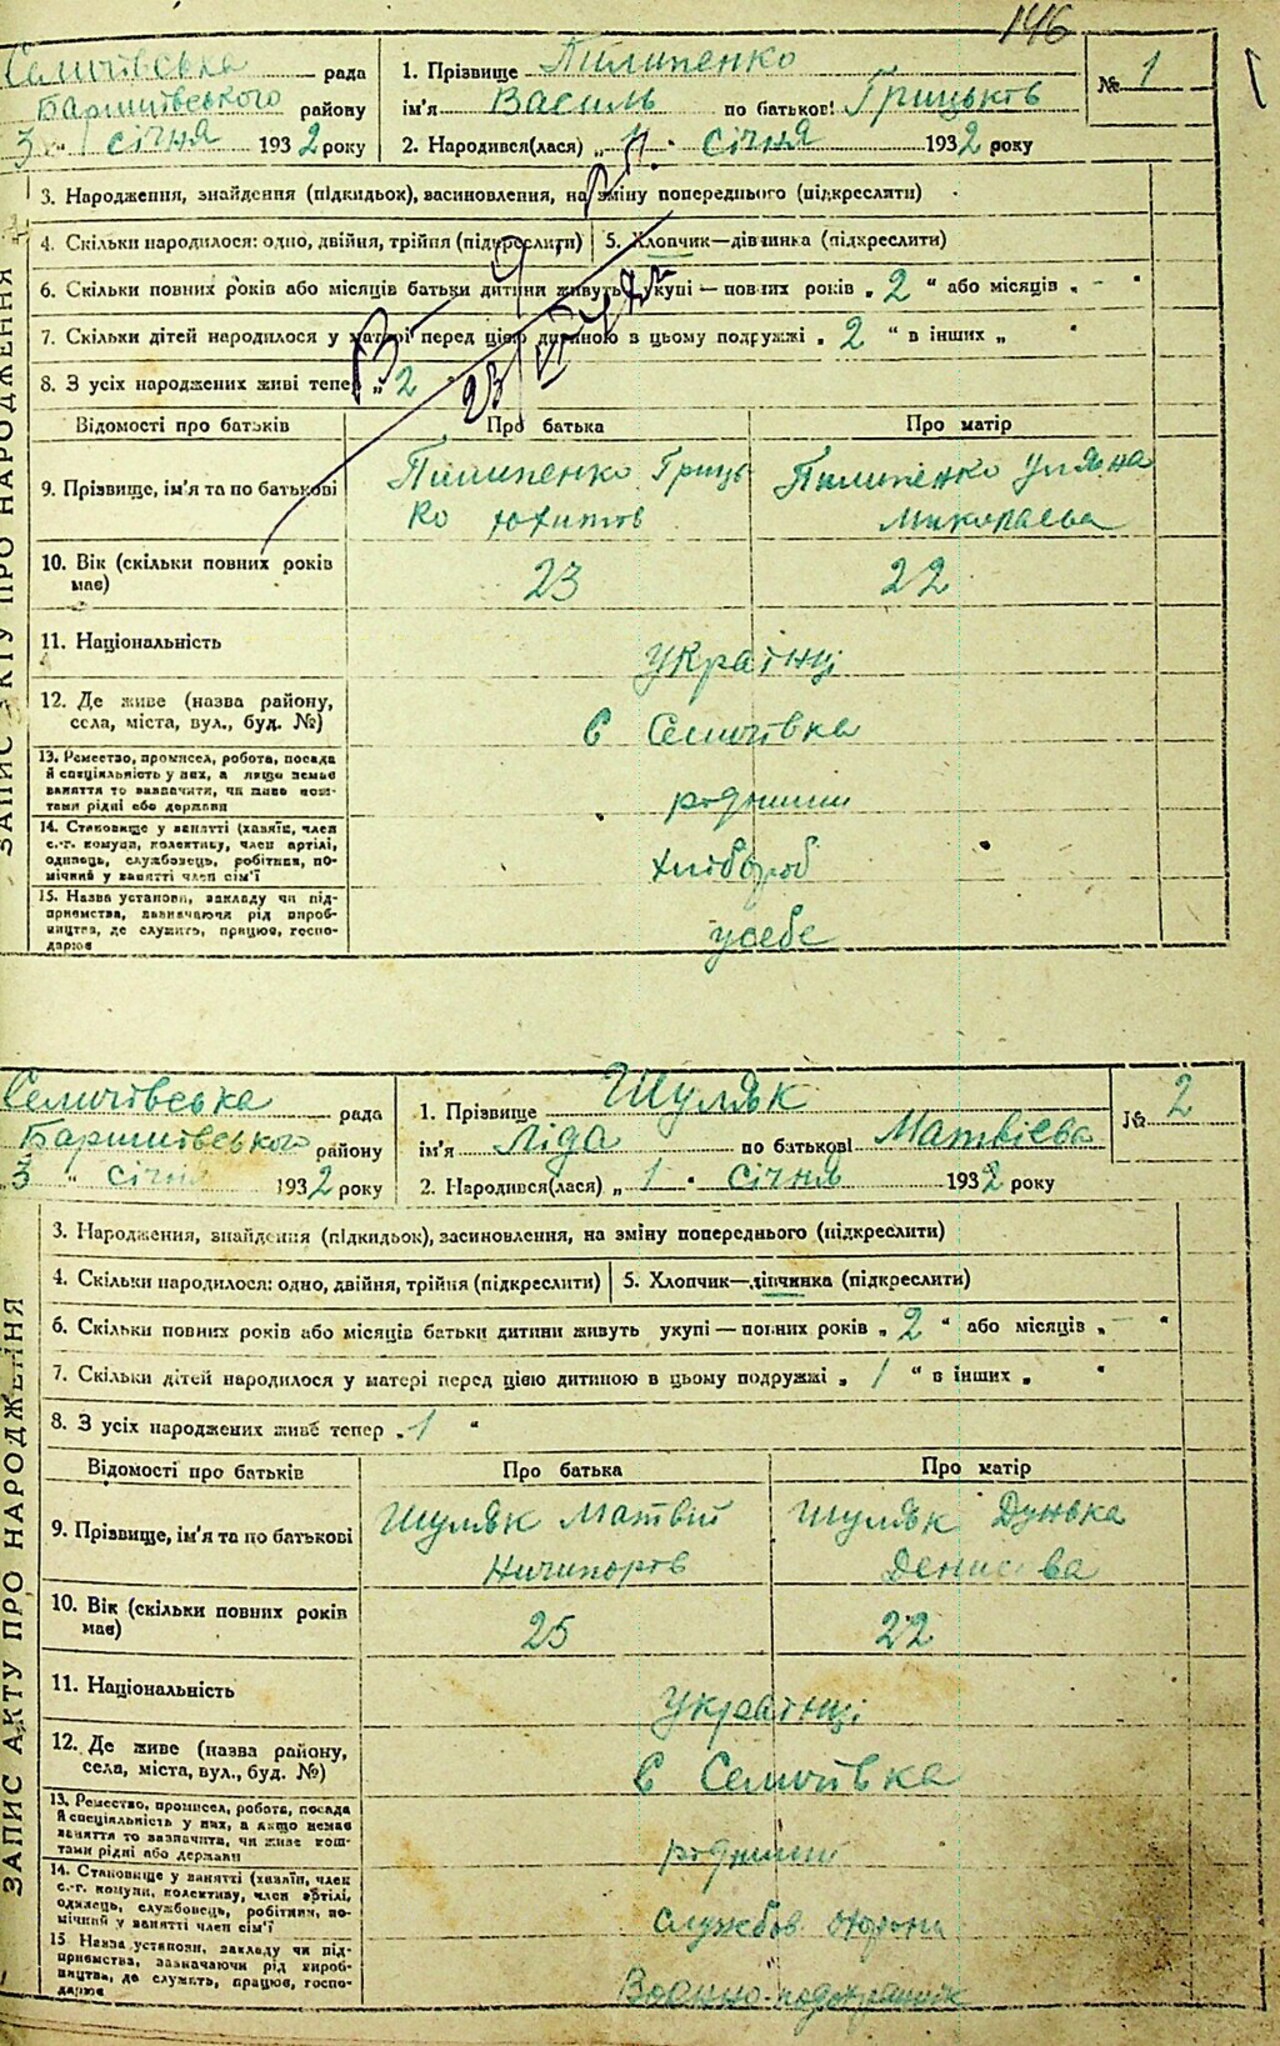 146
Селичівська рада
Баришівського району
3 " січня 1932 року
1. Прізвище Пилипенко
ім'я Василь по батькові Грицьків
№ 1
2. Народився(лася) „ 1 " січня 1932 року
3. Народження, знайдення (підкидьок), васиновлення, на зміну попереднього (підкреслити)
4. Скільки народилося: одно, двійня, трійня (підкреслити) 5. Хлопчик—дівчинка (підкреслити)
6. Скільки повних років або місяців батьки дитини живуть укупі — повних років „ 2 " або місяців „ - "
7. Скільки дітей народилося у матері перед цією дитиною в цьому подружжі „ 2 " в інших „ "
8. З усіх народжених живі тепер „ 2 "
23
Відомості про батьків Про батька Про матір
9. Прізвище, ім'я та по батькові
Пилипенко Гриць
ко Юхимів
Пилипенко Уляна
Миколаєва
10. Вік (скільки повних років має) 23 22
11. Національність Українці
12. Де живе (назва району, села, міста, вул., буд. №) с Селичівка
13. Ремество, промисел, робота, посада й спеціяльність у них, а якщо немає заняття то зазначити, чи живе коштами рідні або держави
14. Становище у занятті (хазяїн, член с.-г. комуни, колективу, член артілі, одинець, службовець, робітник, помічний у занятті член сім'ї хлібороб
15. Назва установи, закладу чи підприємства, зазначаючи рід виробництва, де служить, працює, господарює у себе
ЗАПИС АКТУ ПРО НАРОДЖЕННЯ
Селичівська рада
Баришівського району
„3 " січня 1932 року
1. Прізвище Шуляк
ім'я Ліда по батькові Матвієва
№ 2
2. Народився(лася) „ 1 " січня 1932 року
3. Народження, знайдення (підкидьок), засиновлення, на зміну попереднього (підкреслити)
4. Скільки народилося: одно, двійня, трійня (підкреслити) 5. Хлопчик—дівчинка (підкреслити)
6. Скільки повних років або місяців батьки дитини живуть укупі — повних років „ 2 " або місяців „ - "
7. Скільки дітей народилося у матері перед цією дитиною в цьому подружжі „ 1 " в інших „ "
8. З усіх народжених живе тепер „ 1 "
Відомості про батьків Про батька Про матір
9. Прізвище, ім'я та по батькові
Шуляк Матвій
Ничипорів
Шуляк Дунька
Денисова
10. Вік (скільки повних років має) 25 22
11. Національність Українці
12. Де живе (назва району, села, міста, вул., буд. №) с Селичівка
13. Ремество, промисел, робота, посада й спеціяльність у них, а якщо немає заняття то зазначити, чи живе коштами рідні або держави
14. Становище у занятті (хазяїн, член с.-г. комуни, колективу, член артілі, одинець, службовець, робітник, помічний у занятті член сім'ї службов. охорони
15 Назва установи, закладу чи підприємства, зазначаючи рід виробництва, де служить, працює, господарює
ЗАПИС АКТУ ПРО НАРОДЖЕННЯ